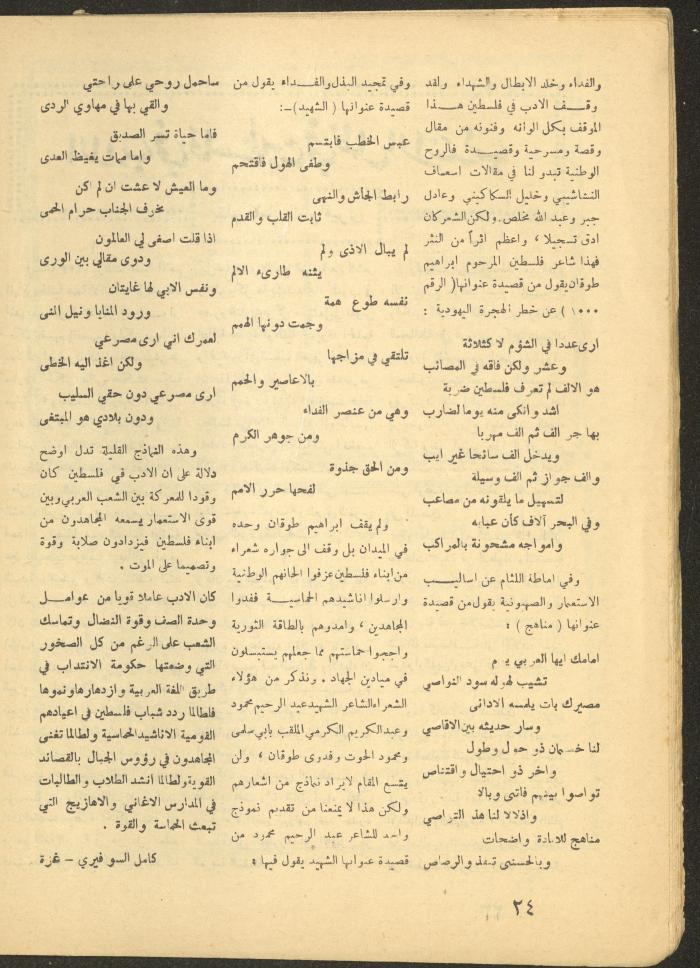 والفداء وخلد الابطال والشهداء ولقد
وقف الادب في فلسطين هذا
الموقف بكل الوانه وفنونه من مقال
وقصة ومسرحية وقصيدة فالروح
الوطنية تبدو لنا في مقالات اسعاف
النشاشيبي وخليل السكاكيني وعادل
جبر وعبد الله مخلص. ولكن الشعر كان
ادق تسجيلا ، واعظم اثراً من النثر
فهذا شاعر فلسطين المرحوم ابراهيم
طوقان يقول من قصيدة عنوانها ( الرقم
١٠٠٠ ) عن خطر الهجرة اليهودية :
ارى عددا في الشؤم لا كثلاثة
وعشر ولكن فاقه في المصائب
هو الالف لم تعرف فلسطين ضربة
اشد وانكى منه يوما لضارب
يها جر الف ثم الف مهربا
ويدخل الف سائحا غير ايب
والف جواز ثم الف وسيلة
لتسهيل ما يلقونه من مصاعب
وفي البحر آلاف كأن عبابه
وامواجه مشحونة بالمراكب
وفي اماطة اللثام عن اساليب
الاستعمار والصهيونية يقول من قصيدة
عنوانها ( مناهج ) :
امامك ايها العربي يوم
تشيب لهوله سود النواصي
مصيرك بات يلمسه الادانى
وسار حديثه بين الاقاصي
لنا خصمان ذو حول وطول
واخر ذو احتيال واقتناص
تواصوا بينهم فاتى وبالا
واذلالا لنا هذ التواصي
مناهج للابادة واضحات
وبالحسنى تنفذ والرصاص
وفي تمجيد البذل والفداء يقول من
قصيدة عنوانها ( الشهيد ) :ـ
عبس الخطب فابتسم
وطغى الهول فاقتحم
رابط الجأش والنهى
ثابت القلب والقدم
لم يبال الاذى ولم
يثنه طارىء الالم
نفسه طوع همة
وجمت دونها الهمم
تلتقي في مزاجها
بالاعاصير والحمم
وهي من عنصر الفداء
ومن جوهر الكرم
ومن الحق جذوة
لفحها حرر الامم
ولم يقف ابراهيم طوقان وحده
في الميدان بل وقف الى جواره شعراء
من ابناء فلسطين عزفوا الحانهم الوطنية
وارسلوا اناشيدهم الحماسية فغدوا
المجاهدين ، وامدوهم بالطاقة الثورية
واججوا حماستهم مما جعلهم يستبسلون
في ميادين الجهاد . ونذكر من هؤلاء
الشعراء الشاعر الشهيد عبد الرحيم محمود
وعبد الكريم الكرمي الملقب بابي سلمى
ومحمود الحوت وفدوى طوقان ، ولن
يتسع المقام لايراد نماذج من اشعارهم
ولكن هذا لا يمنعنا من تقديم نموذج
واحد للشاعر عبد الرحيم محمود من
قصيدة عنوانها الشهيد يقول فيها :
ساحمل روحي على راحتي
والقي بها في مهاوي الردى
فاما حياة تسر الصديق
واما ممات يغيظ العدى
وما العيش لا عشت ان لم اكن
مخوف الجناب حرام الحمى
اذا قلت اصغى لي العالمون
ودوى مقالي بين الورى
ونفس الابي لها غايتان
ورود المنايا ونيل المنى
لعمرك اني ارى مصرعي
ولكن اغذ اليه الخطى
ارى مصرعي دون حقي السليب
ودون بلادي هو المبتغى
وهذه النماذج القليلة تدل اوضح
دلالة على ان الادب في فلسطين كان
وقودا للمعركة بين الشعب العربي وبين
قوى الاستعمار يسمعه المجاهدون من
ابناء فلسطين فيزدادون صلابة وقوة
وتصميما على الموت .
كان الادب عاملا قويا من عوامل
وحدة الصف وقوة النضال وتماسك
الشعب على الرغم من كل الصخور
التي وضعتها حكومة الانتداب في
طريق اللغة العربية وازدهارها ونموها
فلطالما ردد شباب فلسطين في اعيادهم
القومية الاناشيد الحماسية ولطالما تغنى
المجاهدون في رؤوس الجبال بالقصائد
القوية ولطالما انشد الطلاب والطالبات
في المدارس الاغاني والاهازيج التي
تبعث الحماسة والقوة .
كامل السوافيري – غزة
٢٤